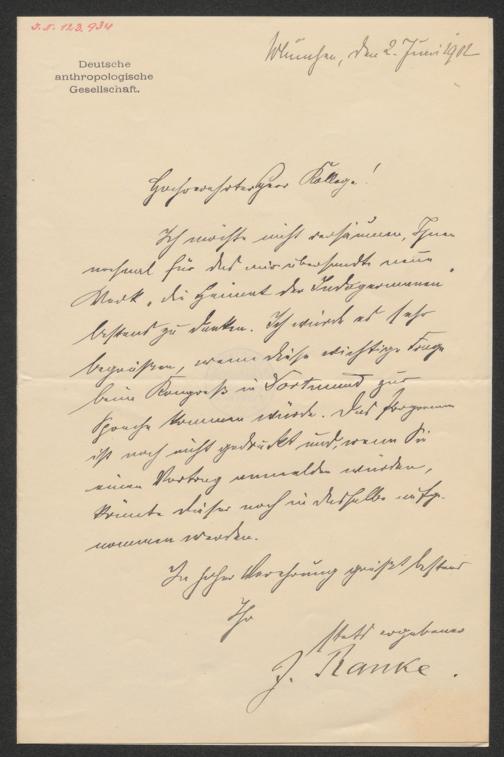 J.N. 123.934
Deutsche
anthropologische
Gesellschaft.
München, den 2. Juni 1902
Hochverehrter Herr Kollege!
Ich möchte nicht versäumen, Ihnen
nochmal für das mir übersandte neue
Werk „die Heimat der Indogermanen“
bestens zu danken. Ich würde es sehr
begrüßen, wenn diese wichtige Frage
beim Kongreß in Dortmund zur
Sprache kommen würde. Das Programm
ist noch nicht gedruckt und, wenn Sie
einen Vortrag anmelden würden,
könnte dieser noch in dasselbe aufge-
nommen werden.
In hoher Verehrung grüßt bestens
Ihr
stets ergebener
J. Ranke.